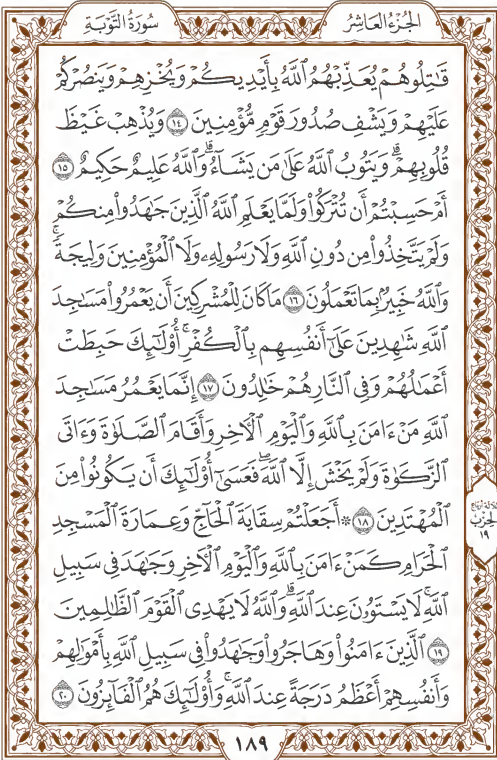 الجُزْءُ العَاشِرُ
سُورَةُ التَّوْبَةِ
قَٰتِلُوهُمْ يُعَذِّبْهُمُ ٱللَّهُ بِأَيْدِيكُمْ وَيُخْزِهِمْ وَيَنصُرْكُمْ
عَلَيْهِمْ وَيَشْفِ صُدُورَ قَوْمٍ مُّؤْمِنِينَ ١٤ وَيُذْهِبْ غَيْظَ
قُلُوبِهِمْۗ وَيَتُوبُ ٱللَّهُ عَلَىٰ مَن يَشَآءُۗ وَٱللَّهُ عَلِيمٌ حَكِيمٌ ١٥
أَمْ حَسِبْتُمْ أَن تُتْرَكُوا۟ وَلَمَّا يَعْلَمِ ٱللَّهُ ٱلَّذِينَ جَٰهَدُوا۟ مِنكُمْ
وَلَمْ يَتَّخِذُوا۟ مِن دُونِ ٱللَّهِ وَلَا رَسُولِهِۦ وَلَا ٱلْمُؤْمِنِينَ وَلِيجَةًۚ
وَٱللَّهُ خَبِيرٌۢ بِمَا تَعْمَلُونَ ١٦ مَا كَانَ لِلْمُشْرِكِينَ أَن يَعْمُرُوا۟ مَسَٰجِدَ
ٱللَّهِ شَٰهِدِينَ عَلَىٰٓ أَنفُسِهِم بِٱلْكُفْرِۚ أُو۟لَٰٓئِكَ حَبِطَتْ
أَعْمَٰلُهُمْ وَفِى ٱلنَّارِ هُمْ خَٰلِدُونَ ١٧ إِنَّمَا يَعْمُرُ مَسَٰجِدَ
ٱللَّهِ مَنْ ءَامَنَ بِٱللَّهِ وَٱلْيَوْمِ ٱلْءَاخِرِ وَأَقَامَ ٱلصَّلَوٰةَ وَءَاتَى
ٱلزَّكَوٰةَ وَلَمْ يَخْشَ إِلَّا ٱللَّهَۖ فَعَسَىٰٓ أُو۟لَٰٓئِكَ أَن يَكُونُوا۟ مِنَ
ٱلْمُهْتَدِينَ ١٨ ۞ أَجَعَلْتُمْ سِقَايَةَ ٱلْحَآجِّ وَعِمَارَةَ ٱلْمَسْجِدِ
ٱلْحَرَامِ كَمَنْ ءَامَنَ بِٱللَّهِ وَٱلْيَوْمِ ٱلْءَاخِرِ وَجَٰهَدَ فِى سَبِيلِ
ٱللَّهِۚ لَا يَسْتَوُۥنَ عِندَ ٱللَّهِۗ وَٱللَّهُ لَا يَهْدِى ٱلْقَوْمَ ٱلظَّٰلِمِينَ
١٩ ٱلَّذِينَ ءَامَنُوا۟ وَهَاجَرُوا۟ وَجَٰهَدُوا۟ فِى سَبِيلِ ٱللَّهِ بِأَمْوَٰلِهِمْ
وَأَنفُسِهِمْ أَعْظَمُ دَرَجَةً عِندَ ٱللَّهِۚ وَأُو۟لَٰٓئِكَ هُمُ ٱلْفَآئِزُونَ ٢٠
الحِزْبُ
١٩
١٨٩